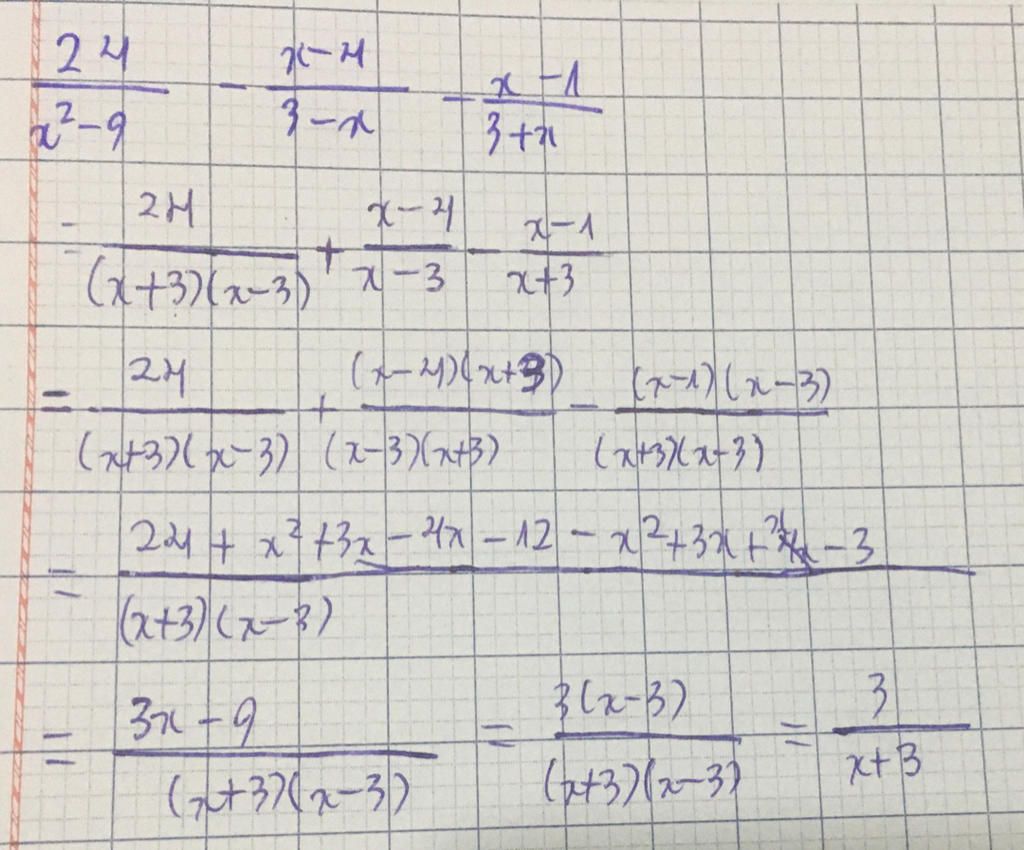 24/(x²-9) - (x-4)/(3-x) - (x-1)/(3+x)
= 24/((x+3)(x-3)) + (x-4)/(x-3) - (x-1)/(x+3)
= 24/((x+3)(x-3)) + ((x-4)(x+3))/((x-3)(x+3)) - ((x-1)(x-3))/((x+3)(x-3))
= (24 + x² + 3x - 4x - 12 - x² + 3x + x - 3)/((x+3)(x-3))
= (3x - 9)/((x+3)(x-3)) = (3(x-3))/((x+3)(x-3)) = 3/(x+3)